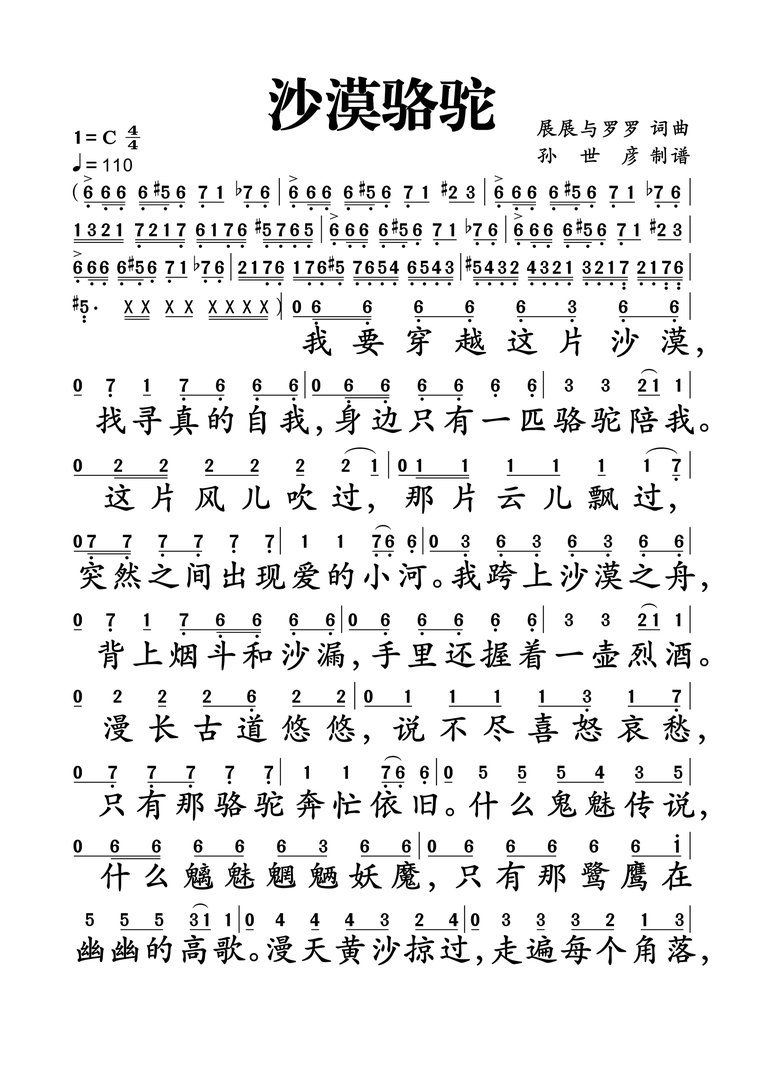 沙漠骆驼
展展与罗罗 词曲
1=C 4/4
孙世彦 制谱
♩=110
(6 6 6 6 #5 6 7 1 b7 6 | 6 6 6 6 #5 6 7 1 #2 3 | 6 6 6 6 #5 6 7 1 b7 6 |
1321 7217 6176 #5765 | 6 6 6 6 #5 6 7 1 b7 6 | 6 6 6 6 #5 6 7 1 #2 3 |
6 6 6 6 #5 6 7 1 b7 6 | 2176 176#5 7654 6543 | #5432 4321 3217 2176 |
#5· X X X X X X X X ) | 0 6 6 6 6 6 3 6 6 |
我要穿越这片沙漠,
0 7 1 7 6 6 6 | 0 6 6 6 6 6 6 3 3 21 1 |
找寻真的自我,身边只有一匹骆驼陪我。
0 2 2 2 2 2 2 1 | 0 1 1 1 1 1 1 7 |
这片风儿吹过,那片云儿飘过,
0 7 7 7 7 7 7 | 1 1 76 6 | 0 3 6 3 6 3 6 6 |
突然之间出现爱的小河。我跨上沙漠之舟,
0 7 1 7 6 6 6 6 | 0 6 6 6 6 6 3 3 21 1 |
背上烟斗和沙漏,手里还握着一壶烈酒。
0 2 2 2 6 2 2 | 0 1 1 1 1 3 1 7 |
漫长古道悠悠,说不尽喜怒哀愁,
0 7 7 7 7 7 | 1 1 76 6 | 0 5 5 5 4 3 5 |
只有那骆驼奔忙依旧。什么鬼魅传说,
0 6 6 6 6 6 3 6 6 | 0 6 6 6 6 6 i |
什么魑魅魍魉妖魔,只有那鹭鹰在
5 5 5 31 1 | 0 4 4 4 3 2 4 | 0 3 3 3 2 1 3 |
幽幽的高歌。漫天黄沙掠过,走遍每个角落,